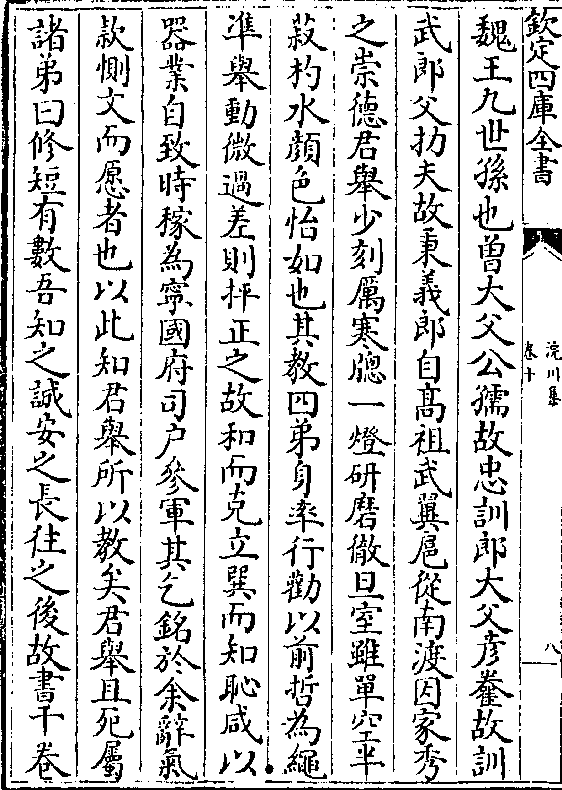 欽定四庫全書
浣川集
卷十
八
魏王九世孫也曽大父公孺故忠訓郎大父彦㒰故訓
武郎父扐夫故秉義郎自髙祖武翼扈從南渡因家秀
之崇德君舉少刻厲寒牕一燈研磨徹旦室雖單空半
菽杓水顔色怡如也其教四弟身率行勸以前哲為繩
凖舉動微過差則抨正之故和而克立巽而知恥咸以
器業自致時稼為寧國府司户參軍其乞銘於余辭氣
款惻文而愿者也以此知君舉所以教矣君舉且死屬
諸弟曰修短有數吾知之誠安之長往之後故書千卷